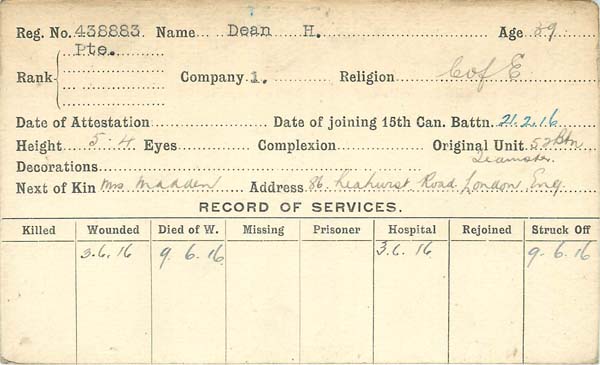 Reg. No. 438883 Name Dean H. Age 29
Pte.
Rank Company 1. Religion C of E
Date of Attestation Date of joining 15th Can. Battn. 21.2.16
Height 5-4 Eyes Complexion Original Unit 52 Btn
Decorations Teamster.
Next of Kin Mrs Madden Address 86. Leahurst Road London. Eng
RECORD OF SERVICES.
Killed Wounded Died of W. Missing Prisoner Hospital Rejoined Struck Off
3.6.16 9.6.16 3.6.16 9.6.16